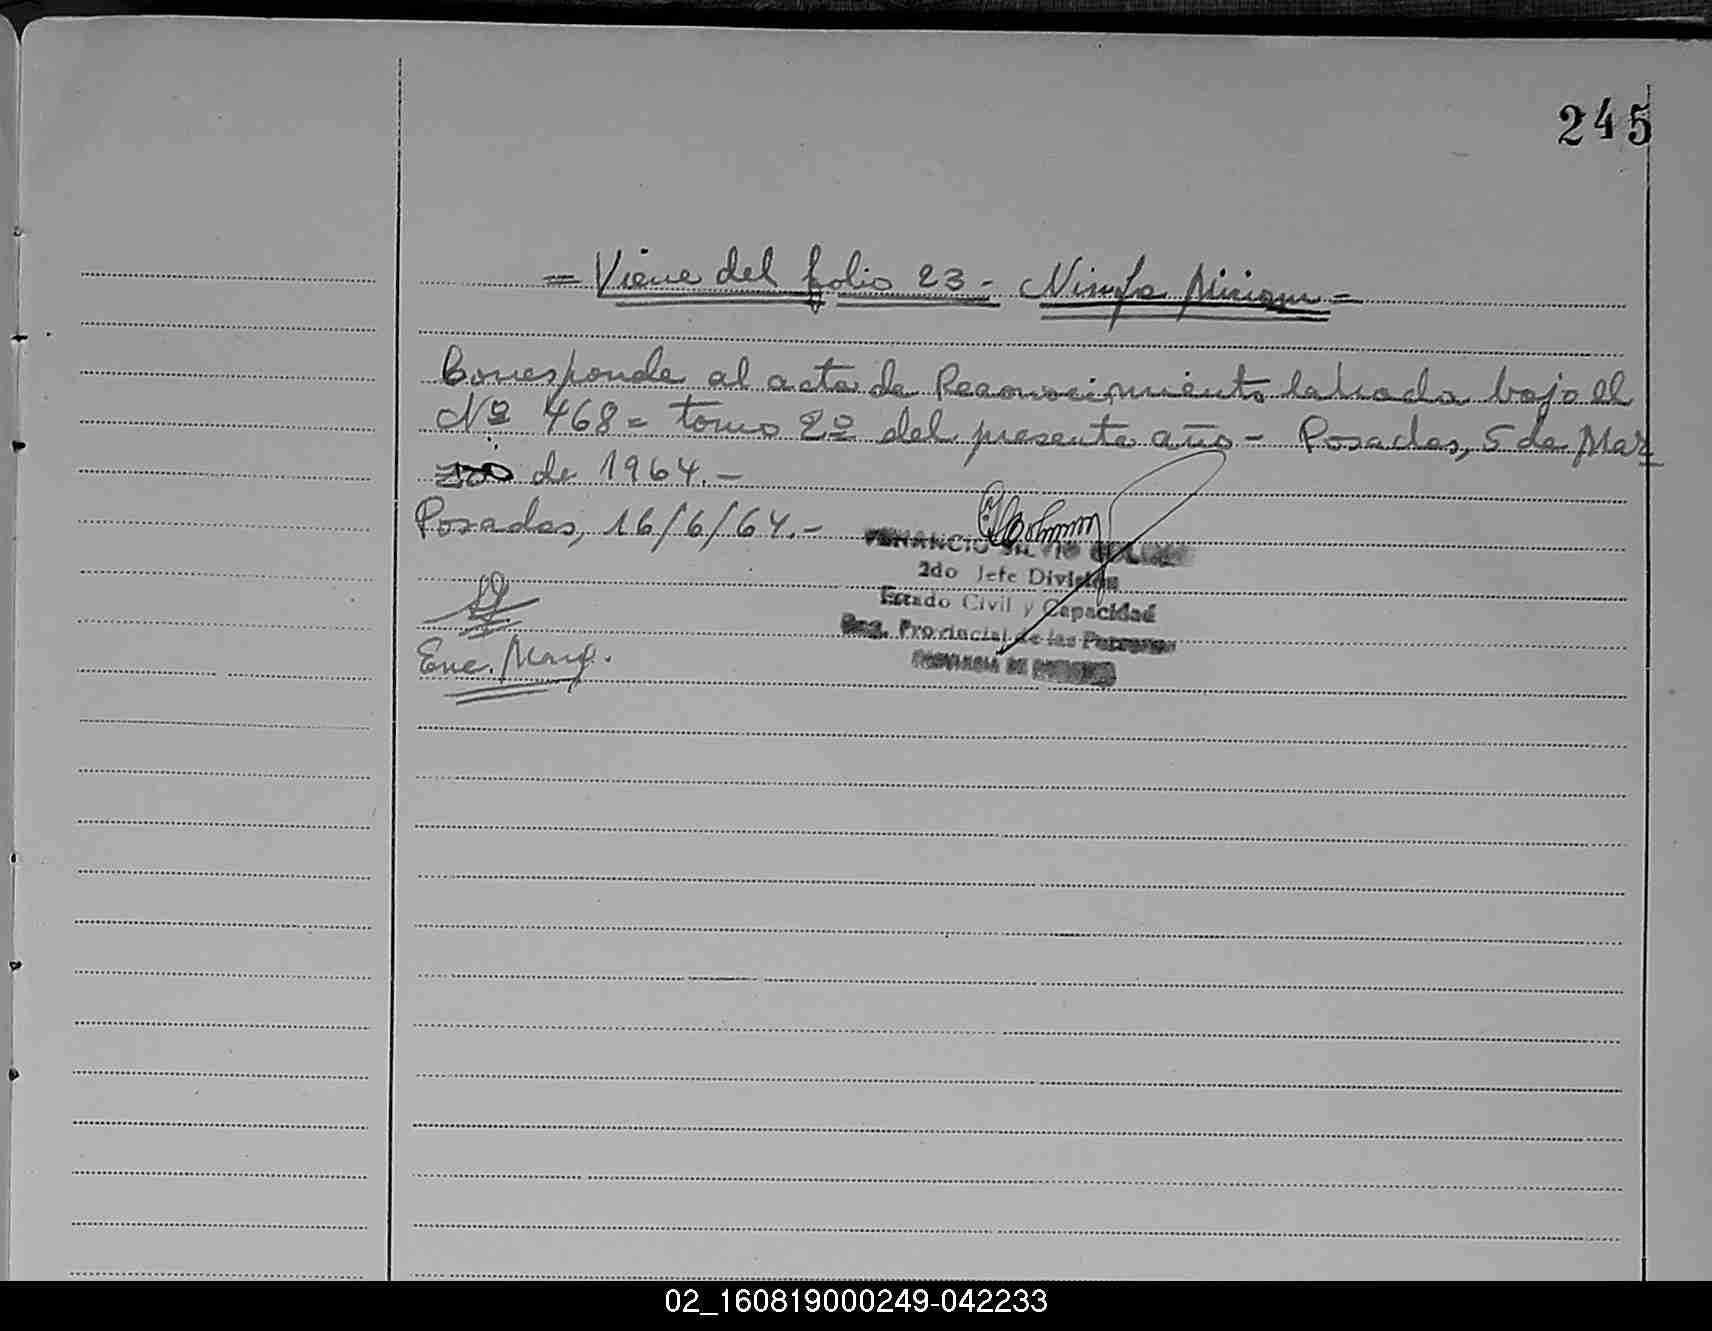 245
= Viene del folio 23 - Ninfa Miriam =
Corresponde al acta de Reconocimiento labrada bajo el
Nº 468 = tomo 2º del presente año - Posadas, 5 de Mar
zo de 1964.-
Posadas, 16/6/64.-
VENANCIO SILVIO
2do Jefe División
Estado Civil y Capacidad
Reg. Provincial de las Personas
PROVINCIA DE MISIONES
Enc. Marg.
02_160819000249-042233